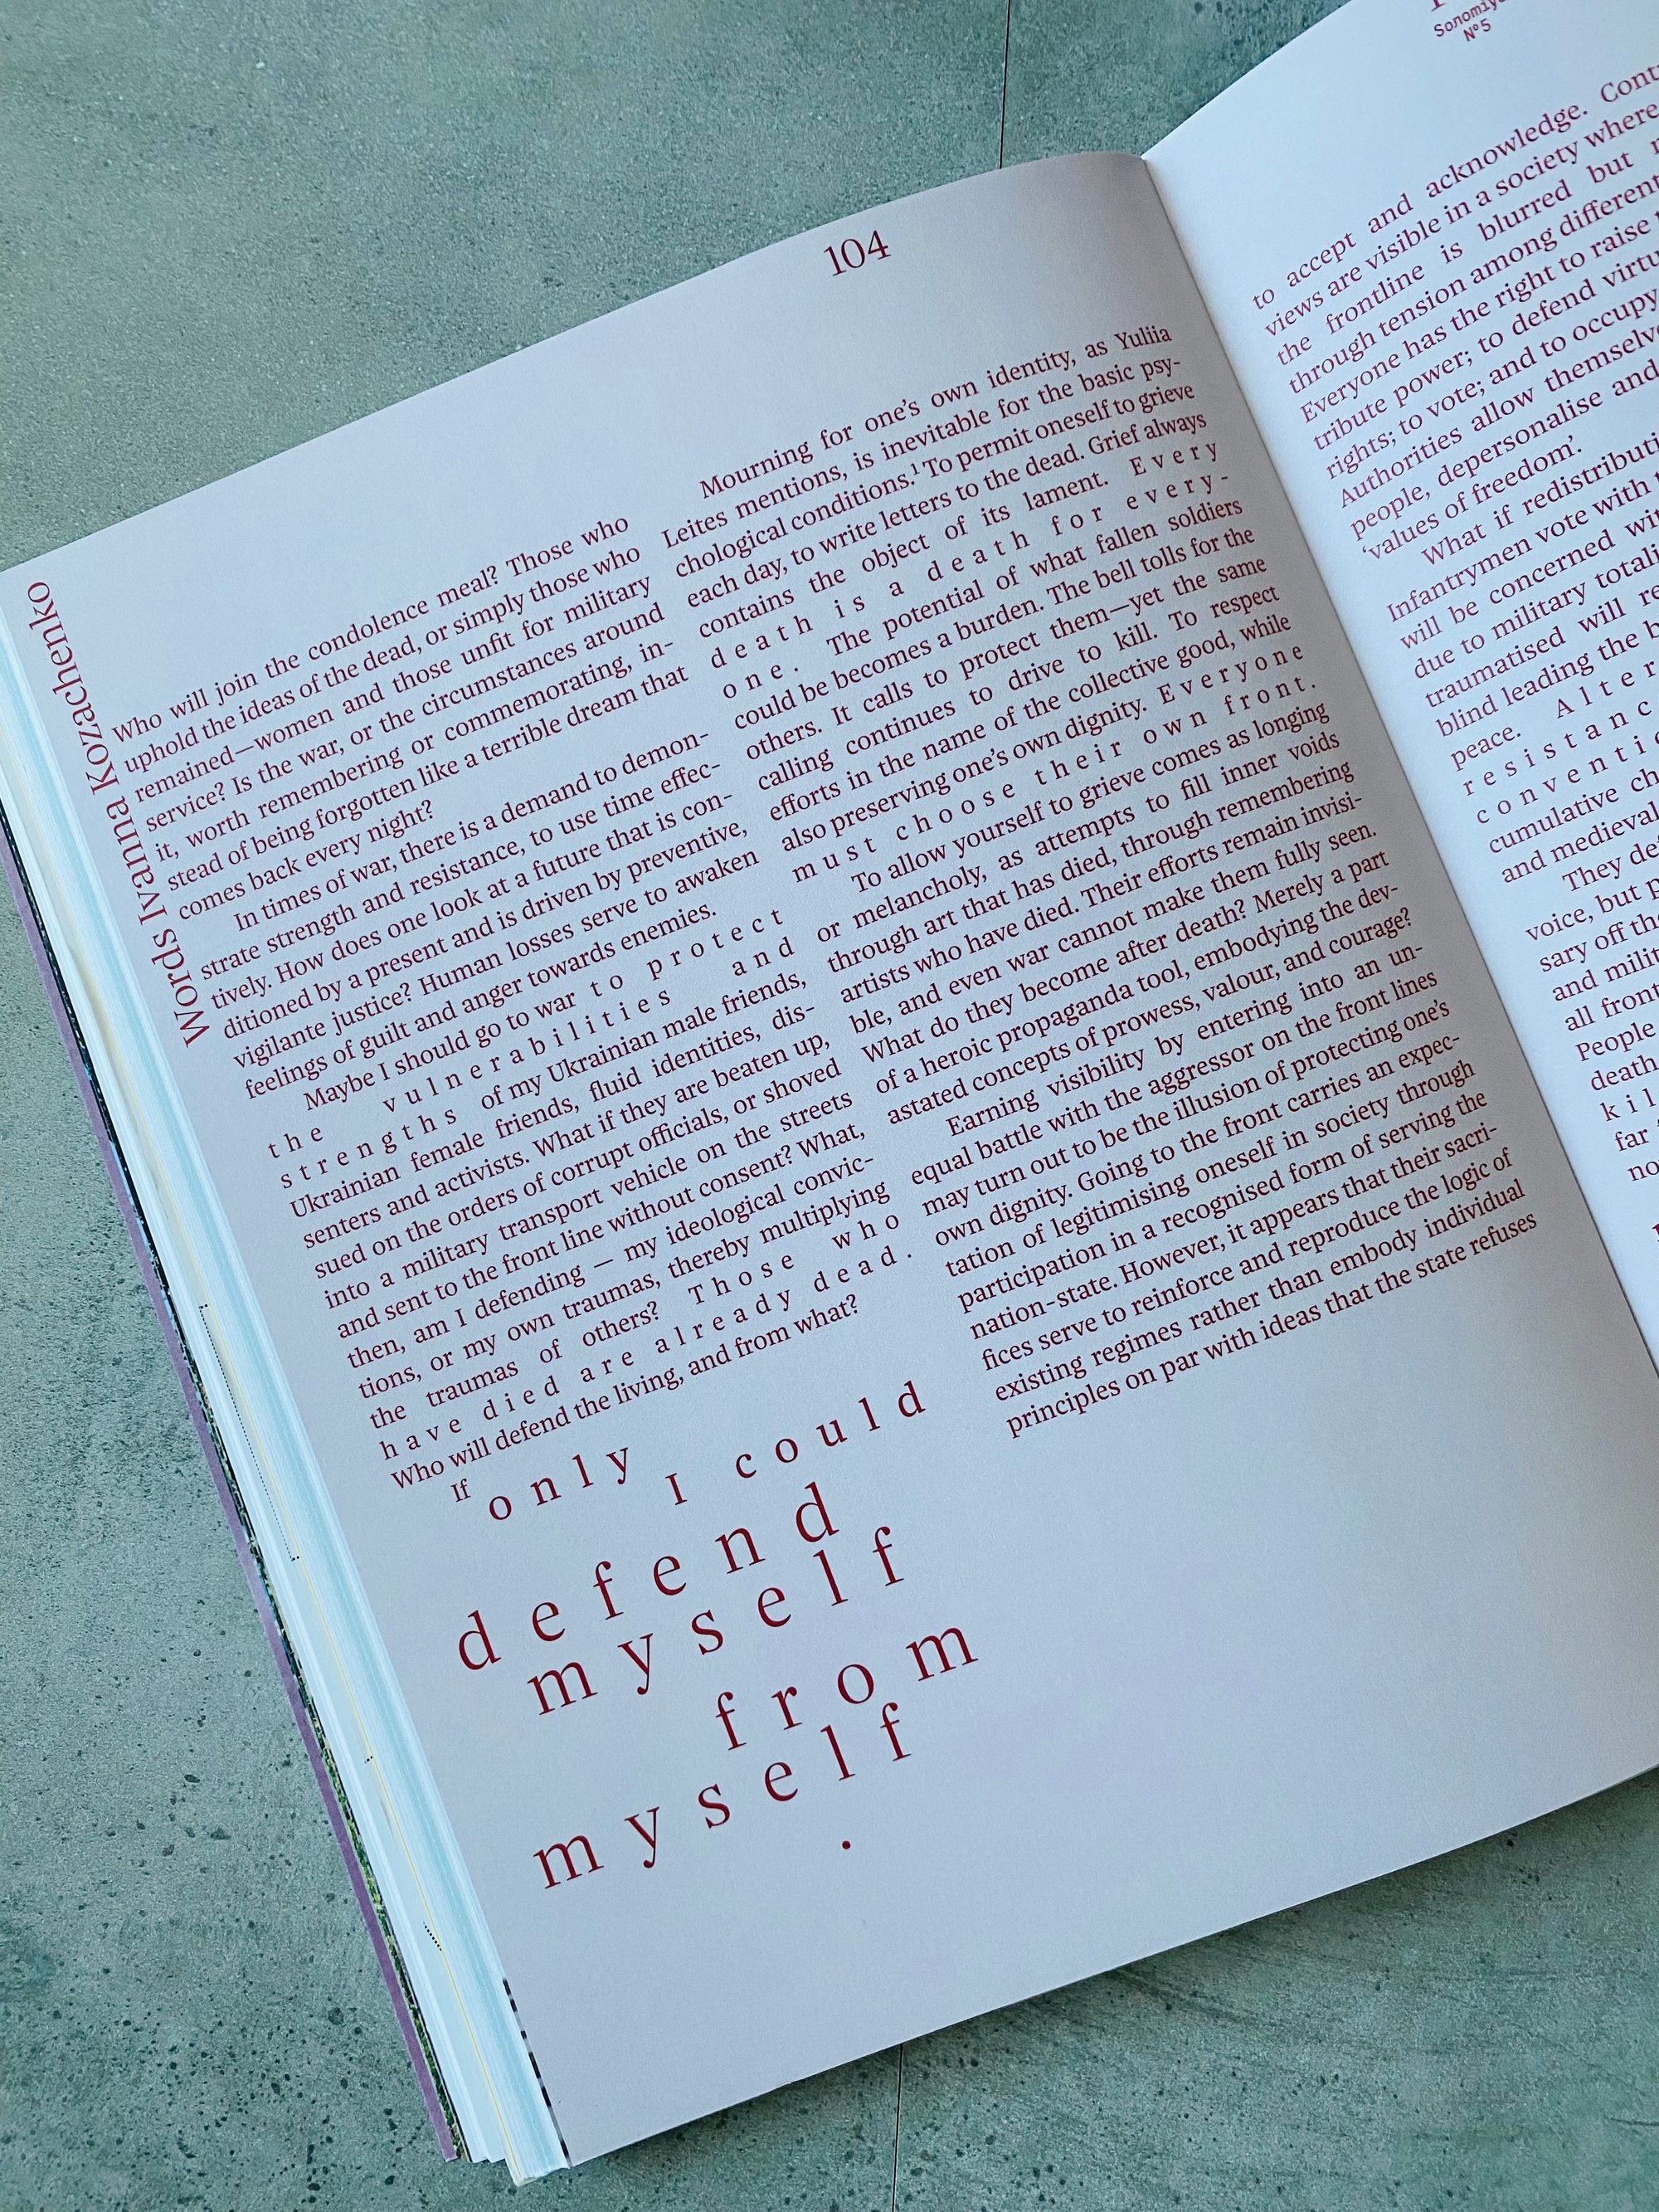 Words Ivanna Kozachenko
104
Who will join the condolence meal? Those who
uphold the ideas of the dead, or simply those who
remained—women and those unfit for military
service? Is the war, or the circumstances around
it, worth remembering or commemorating, in-
stead of being forgotten like a terrible dream that
comes back every night?
In times of war, there is a demand to demon-
strate strength and resistance, to use time effec-
tively. How does one look at a future that is con-
ditioned by a present and is driven by preventive,
vigilante justice? Human losses serve to awaken
feelings of guilt and anger towards enemies.
Maybe I should go to war to protect
the vulnerabilities and
strengths of my Ukrainian male friends,
Ukrainian female friends, fluid identities, dis-
senters and activists. What if they are beaten up,
sued on the orders of corrupt officials, or shoved
into a military transport vehicle on the streets
and sent to the front line without consent? What,
then, am I defending — my ideological convic-
tions, or my own traumas, thereby multiplying
the traumas of others? Those who
have died are already dead.
Who will defend the living, and from what?
If only I could
defend
myself
from
myself
.
Mourning for one's own identity, as Yuliia
Leites mentions, is inevitable for the basic psy-
chological conditions.¹ To permit oneself to grieve
each day, to write letters to the dead. Grief always
contains the object of its lament. Every
death is a death for every-
one. The potential of what fallen soldiers
could be becomes a burden. The bell tolls for the
others. It calls to protect them—yet the same
calling continues to drive to kill. To respect
efforts in the name of the collective good, while
also preserving one's own dignity. Everyone
must choose their own front.
To allow yourself to grieve comes as longing
or melancholy, as attempts to fill inner voids
through art that has died, through remembering
artists who have died. Their efforts remain invisi-
ble, and even war cannot make them fully seen.
What do they become after death? Merely a part
of a heroic propaganda tool, embodying the dev-
astated concepts of prowess, valour, and courage?
Earning visibility by entering into an un-
equal battle with the aggressor on the front lines
may turn out to be the illusion of protecting one's
own dignity. Going to the front carries an expec-
tation of legitimising oneself in society through
participation in a recognised form of serving the
nation-state. However, it appears that their sacri-
fices serve to reinforce and reproduce the logic of
existing regimes rather than embody individual
principles on par with ideas that the state refuses
Nº5
to accept and acknowledge.
views are visible in a society where
the frontline is blurred but
through tension among different
Everyone has the right to raise
tribute power; to defend
rights; to vote; and to occupy
Authorities allow
people, depersonalise and
'values of freedom'.
What if
Infantrymen vote with
will be concerned
due to military
traumatised will
blind leading the
peace.
cumulative
and medieval
They
voice, but
sary off
and
all
People
death
far